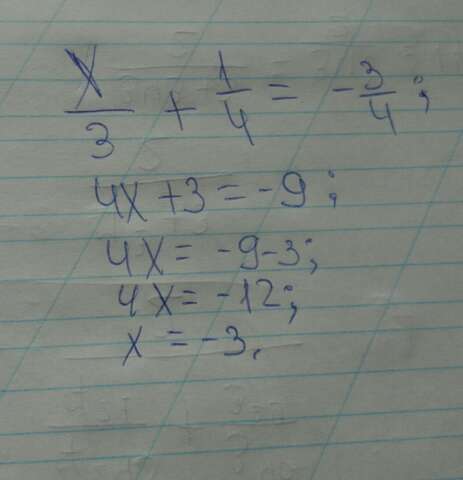 x/3 + 1/4 = -3/4;
4x + 3 = -9;
4x = -9-3;
4x = -12;
x = -3.